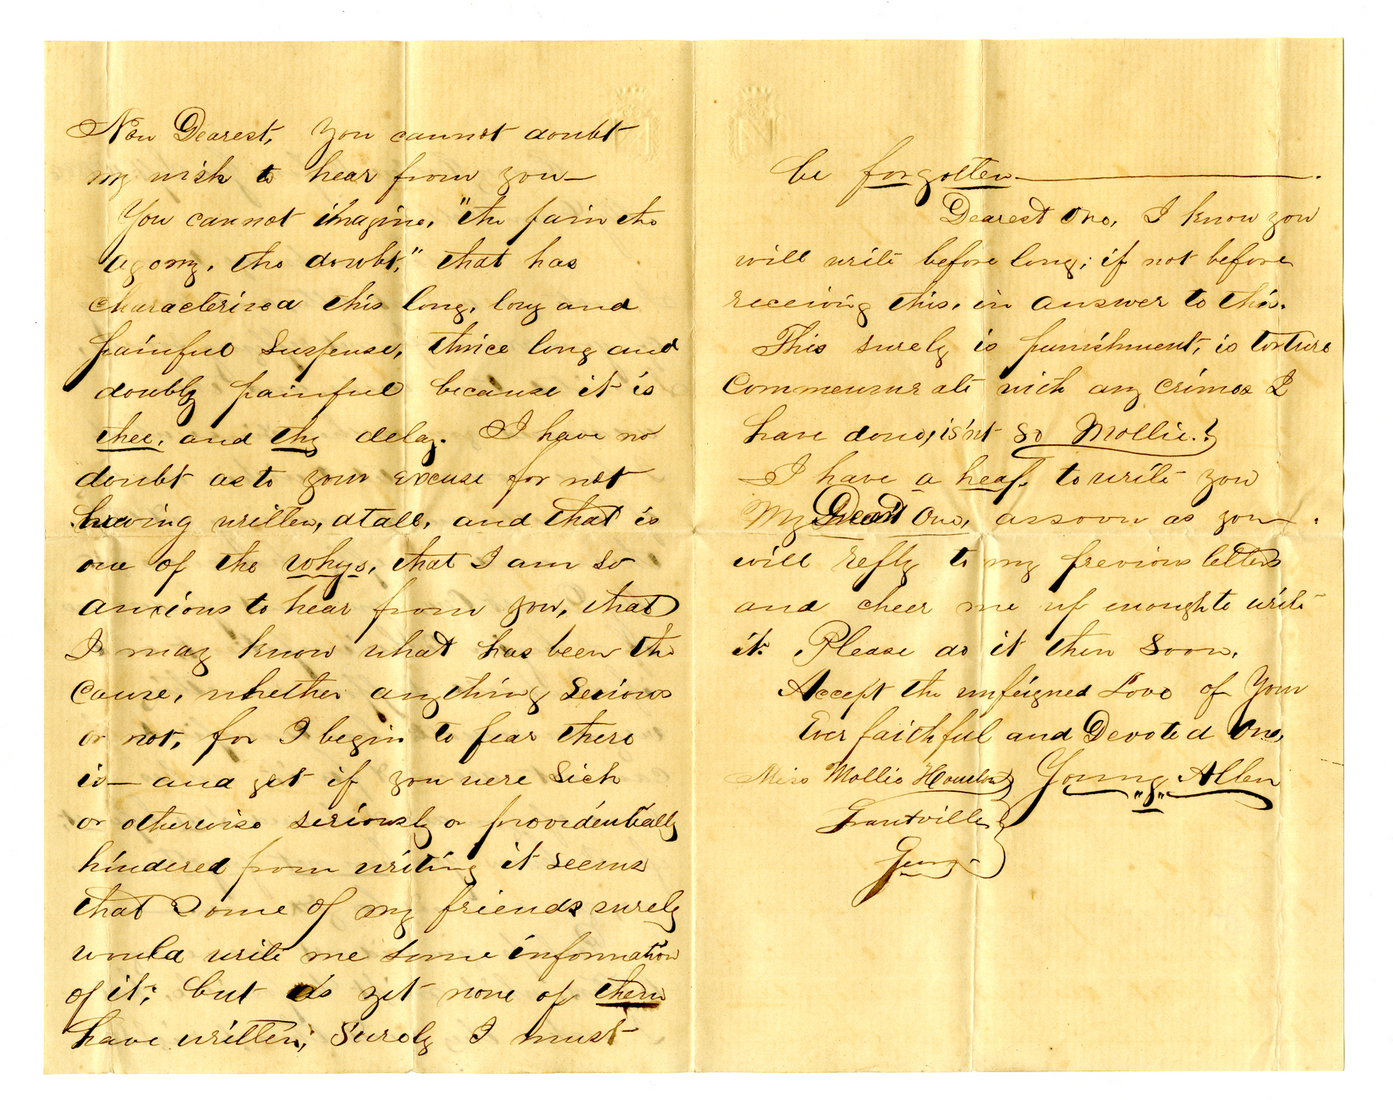 Now Dearest, You cannot doubt
my wish to hear from you—
You cannot imagine, "the pain the
agony, the doubt," that has
characterised this long, long and
painful suspense, thrice long and
doubly painful because it is
thee, and thy delay. I have no
doubt as to your excuse for not
having written, atall, and that is
one of the whys, that I am so
anxious to hear from you, that
I may know what has been the
cause, whether anything serious
or not, for I begin to fear there
is— and yet if you were sick
or otherwise seriously or providentially
hindered from writing it seems
that some of my friends surely
would write me some information
of it; but as yet none of them
have written; Surely I must
be forgotten.
Dearest One, I know you
will write before long; if not before
receiving this, in answer to this.
This surely is punishment, is torture
Commensurate with any crimes I
have done, is'nt so Mollie.?
I have a heap to write you
My Dear One, assoon as you
will reply to my previous letters
and cheer me up enough to write
it. Please do it then soon.
Accept the unfeigned Love of Your
Ever faithful and Devoted One,
Miss Mollie Houston Young J. Allen
Grantville
Georgia